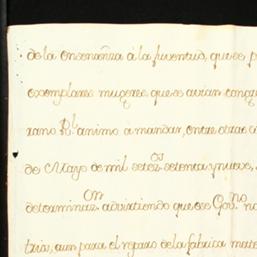 de la enseñanza á la Juventud, que se p
exemplares mugeres que se avian congre
rano Rl. animo a mandar, entre otras co
de Mayo de mil setezos. setenta y nueve,
determinaz.on advirtiendo que ese Govno. no
tria, aun para el reparo de la fabrica mate